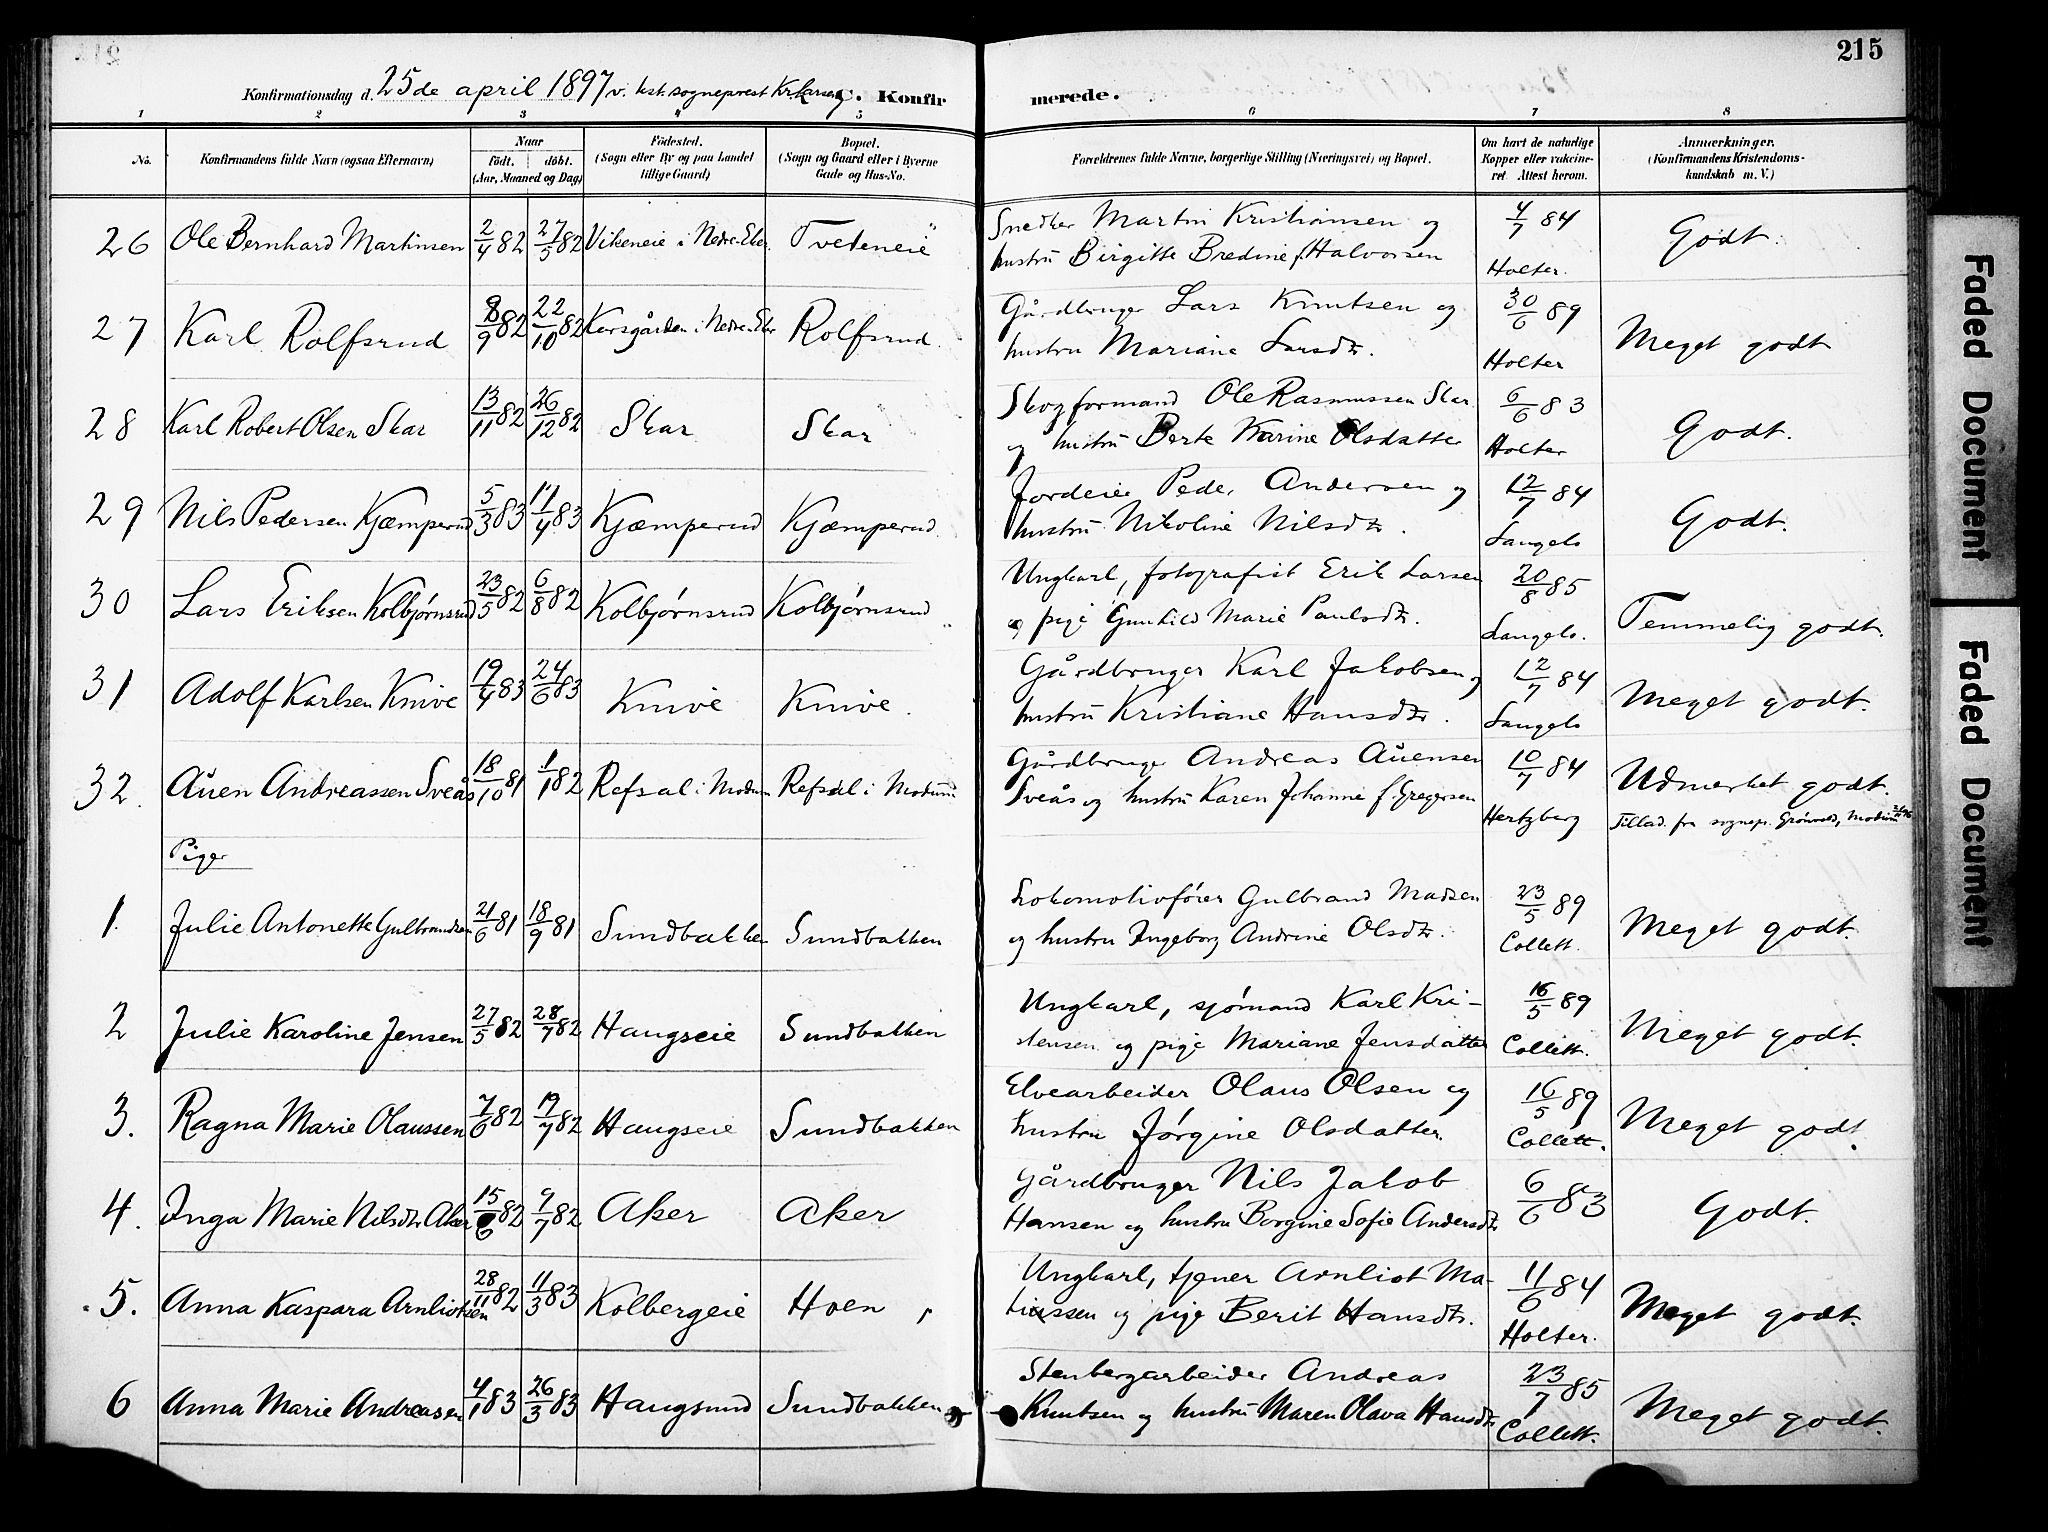 215
Konfirmationsdag d. 25de april 1897 v. kst. sogneprest Kr. Larsen C. Konfirmerede.
1 2 3 4 5 6 7 8
No. Konfirmandens fulde Navn (ogsaa Efternavn) Naar födt. döbt. (Aar, Maaned og Dag) Födested. (Sogn eller By og paa Landet tillige Gaard) Bopæl. (Sogn og Gaard eller i Byerne Gade og Hus-No. Forældrenes fulde Navne, borgerlige Stilling (Næringsvei) og Bopæl. Om havt de naturlige Kopper eller vakcineret. Attest herom. Anmærkninger. (Konfirmandens Kristendomskundskab m. V.)
26 Ole Bernhard Martinsen 2/4 82 27/5 82 Vikeneie i Nedre-Eker. Tvedeneie Snedker Martin Kristiansen og 4/7 84 Godt.
hustru Birgitte Bredine f. Halvorsen Holter.
27 Karl Rolfsrud 8/9 82 22/10 82 Korsgården i Nedre-Eker Rolfsrud. Gårdbruger Lars Knutsen og 30/6 89 Meget godt
hustru Mariane Larsdtr. Holter
28 Karl Robert Olsen Skar 13/11 82 26/12 82 Skar Skar Skogformand Ole Rasmussen Skar 6/6 83 Godt.
og hustru Berte Karine Olsdatter Holter
29 Nils Pedersen Kjæmperud 5/3 83 11/4 83 Kjæmperud Kjæmperud. Jordeier Peder Andersen og 12/7 84 Godt.
hustru Nikoline Nilsdtr. Langelo
30 Lars Eriksen Kolbjørnsrud 23/5 82 6/8 82 Kolbjørnsrud Kolbjørnsrud Ungkarl, fotografist Erik Larsen 20/8 85 Temmelig godt.
og pige Gunhild Marie Paulsdtr. Langelo.
31 Adolf Karlsen Knive 19/4 83 24/6 83 Knive Knive. Gårdbruger Karl Jakobsen og 12/7 84 Meget godt.
hustru Kristiane Hansdtr. Langelo
32. Auen Andreassen Sveås 18/10 81 1/1 82 Refsal i Modum Refsal i Modum Gårdbruger Andreas Auensen 10/7 84 Udmerket godt.
Sveås og hustru Karen Johanne f. Gregersen Hertzberg Tillad. fra sognepr. Grönvold, Modum
Piger
1. Julie Antonette Gulbrandsen 21/6 81 18/9 81 Sundbakken Sundbakken Lokomotivfører Gulbrand Madsen 23/5 89 Meget godt.
og hustru Ingeborg Andrine Olsdtr. Collett.
2 Julie Karoline Jensen 27/5 82 28/7 82 Haugseie Sundbakken Ungkarl, sjømand Karl Kri- 16/5 89 Meget godt.
stensen og pige Mariane Jensdatter Collett.
3. Ragna Marie Olaussen 7/6 82 19/7 82 Haugseie Sundbakken Elvearbeider Olaus Olsen og 16/5 89 Meget godt.
hustru Jørgine Olsdatter. Collett.
4. Inga Marie Nilsdtr. Aker 15/6 82 9/7 82 Aker Aker Gårdbruger Nils Jakob 6/6 83 Godt.
Hansen og hustru Borgine Sofie Andersdtr
5. Anna Kaspara Arnliotsen 28/11 82 11/3 83 Kolbergeie Hoen, Ungkarl, tjener Arnliot Ma- 11/6 84 Meget godt.
tiassen og pige Berit Hansdtr. Holter.
6 Anna Marie Andreasen 4/1 83 26/3 83 Haugsund Sundbakken Stenbergarbeider Andreas 23/7 85 Meget godt.
Knutsen og hustru Maren Olava Hansdtr Collett.
Faded Document
Faded Document